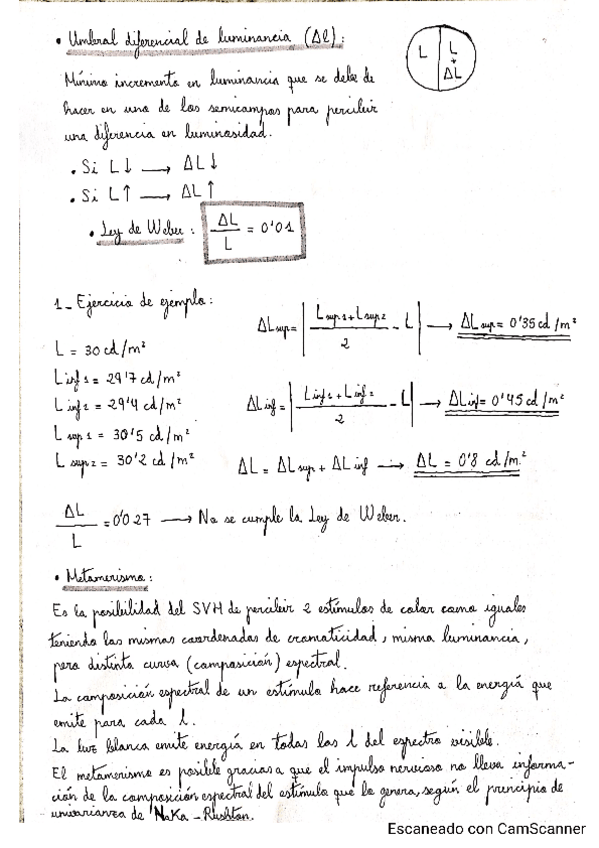 • Umbral diferencial de luminancia (Δl):
L | L + ΔL
Mínimo incremento en luminancia que se debe de
hacer en uno de los semicampos para percibir
una diferencia en luminosidad.
• Si L↓ ⟶ ΔL↓
• Si L↑ ⟶ ΔL↑
• Ley de Weber: ΔL/L = 0'01
1_ Ejercicio de ejemplo:
L = 30 cd/m²
L inf 1 = 29'7 cd/m²
L inf 2 = 29'4 cd/m²
L sup 1 = 30'5 cd/m²
L sup 2 = 30'2 cd/m²
ΔL sup = | (L sup 1 + L sup 2)/2 - L | ⟶ ΔL sup = 0'35 cd/m²
ΔL inf = | (L inf 1 + L inf 2)/2 - L | ⟶ ΔL inf = 0'45 cd/m²
ΔL = ΔL sup + ΔL inf ⟶ ΔL = 0'8 cd/m²
ΔL/L = 0'027 ⟶ No se cumple la Ley de Weber.
• Metamerismo:
Es la posibilidad del SVH de percibir 2 estímulos de color como iguales
teniendo las mismas coordenadas de cromaticidad, misma luminancia,
pero distinta curva (composición) espectral.
La composición espectral de un estímulo hace referencia a la energía que
emite para cada l.
La luz blanca emite energía en todas las l del espectro visible.
El metamerismo es posible gracias a que el impulso nervioso no lleva informa-
ción de la composición espectral del estímulo que lo genera, según el principio de
univarianza de Naka - Rushton.
Escaneado con CamScanner